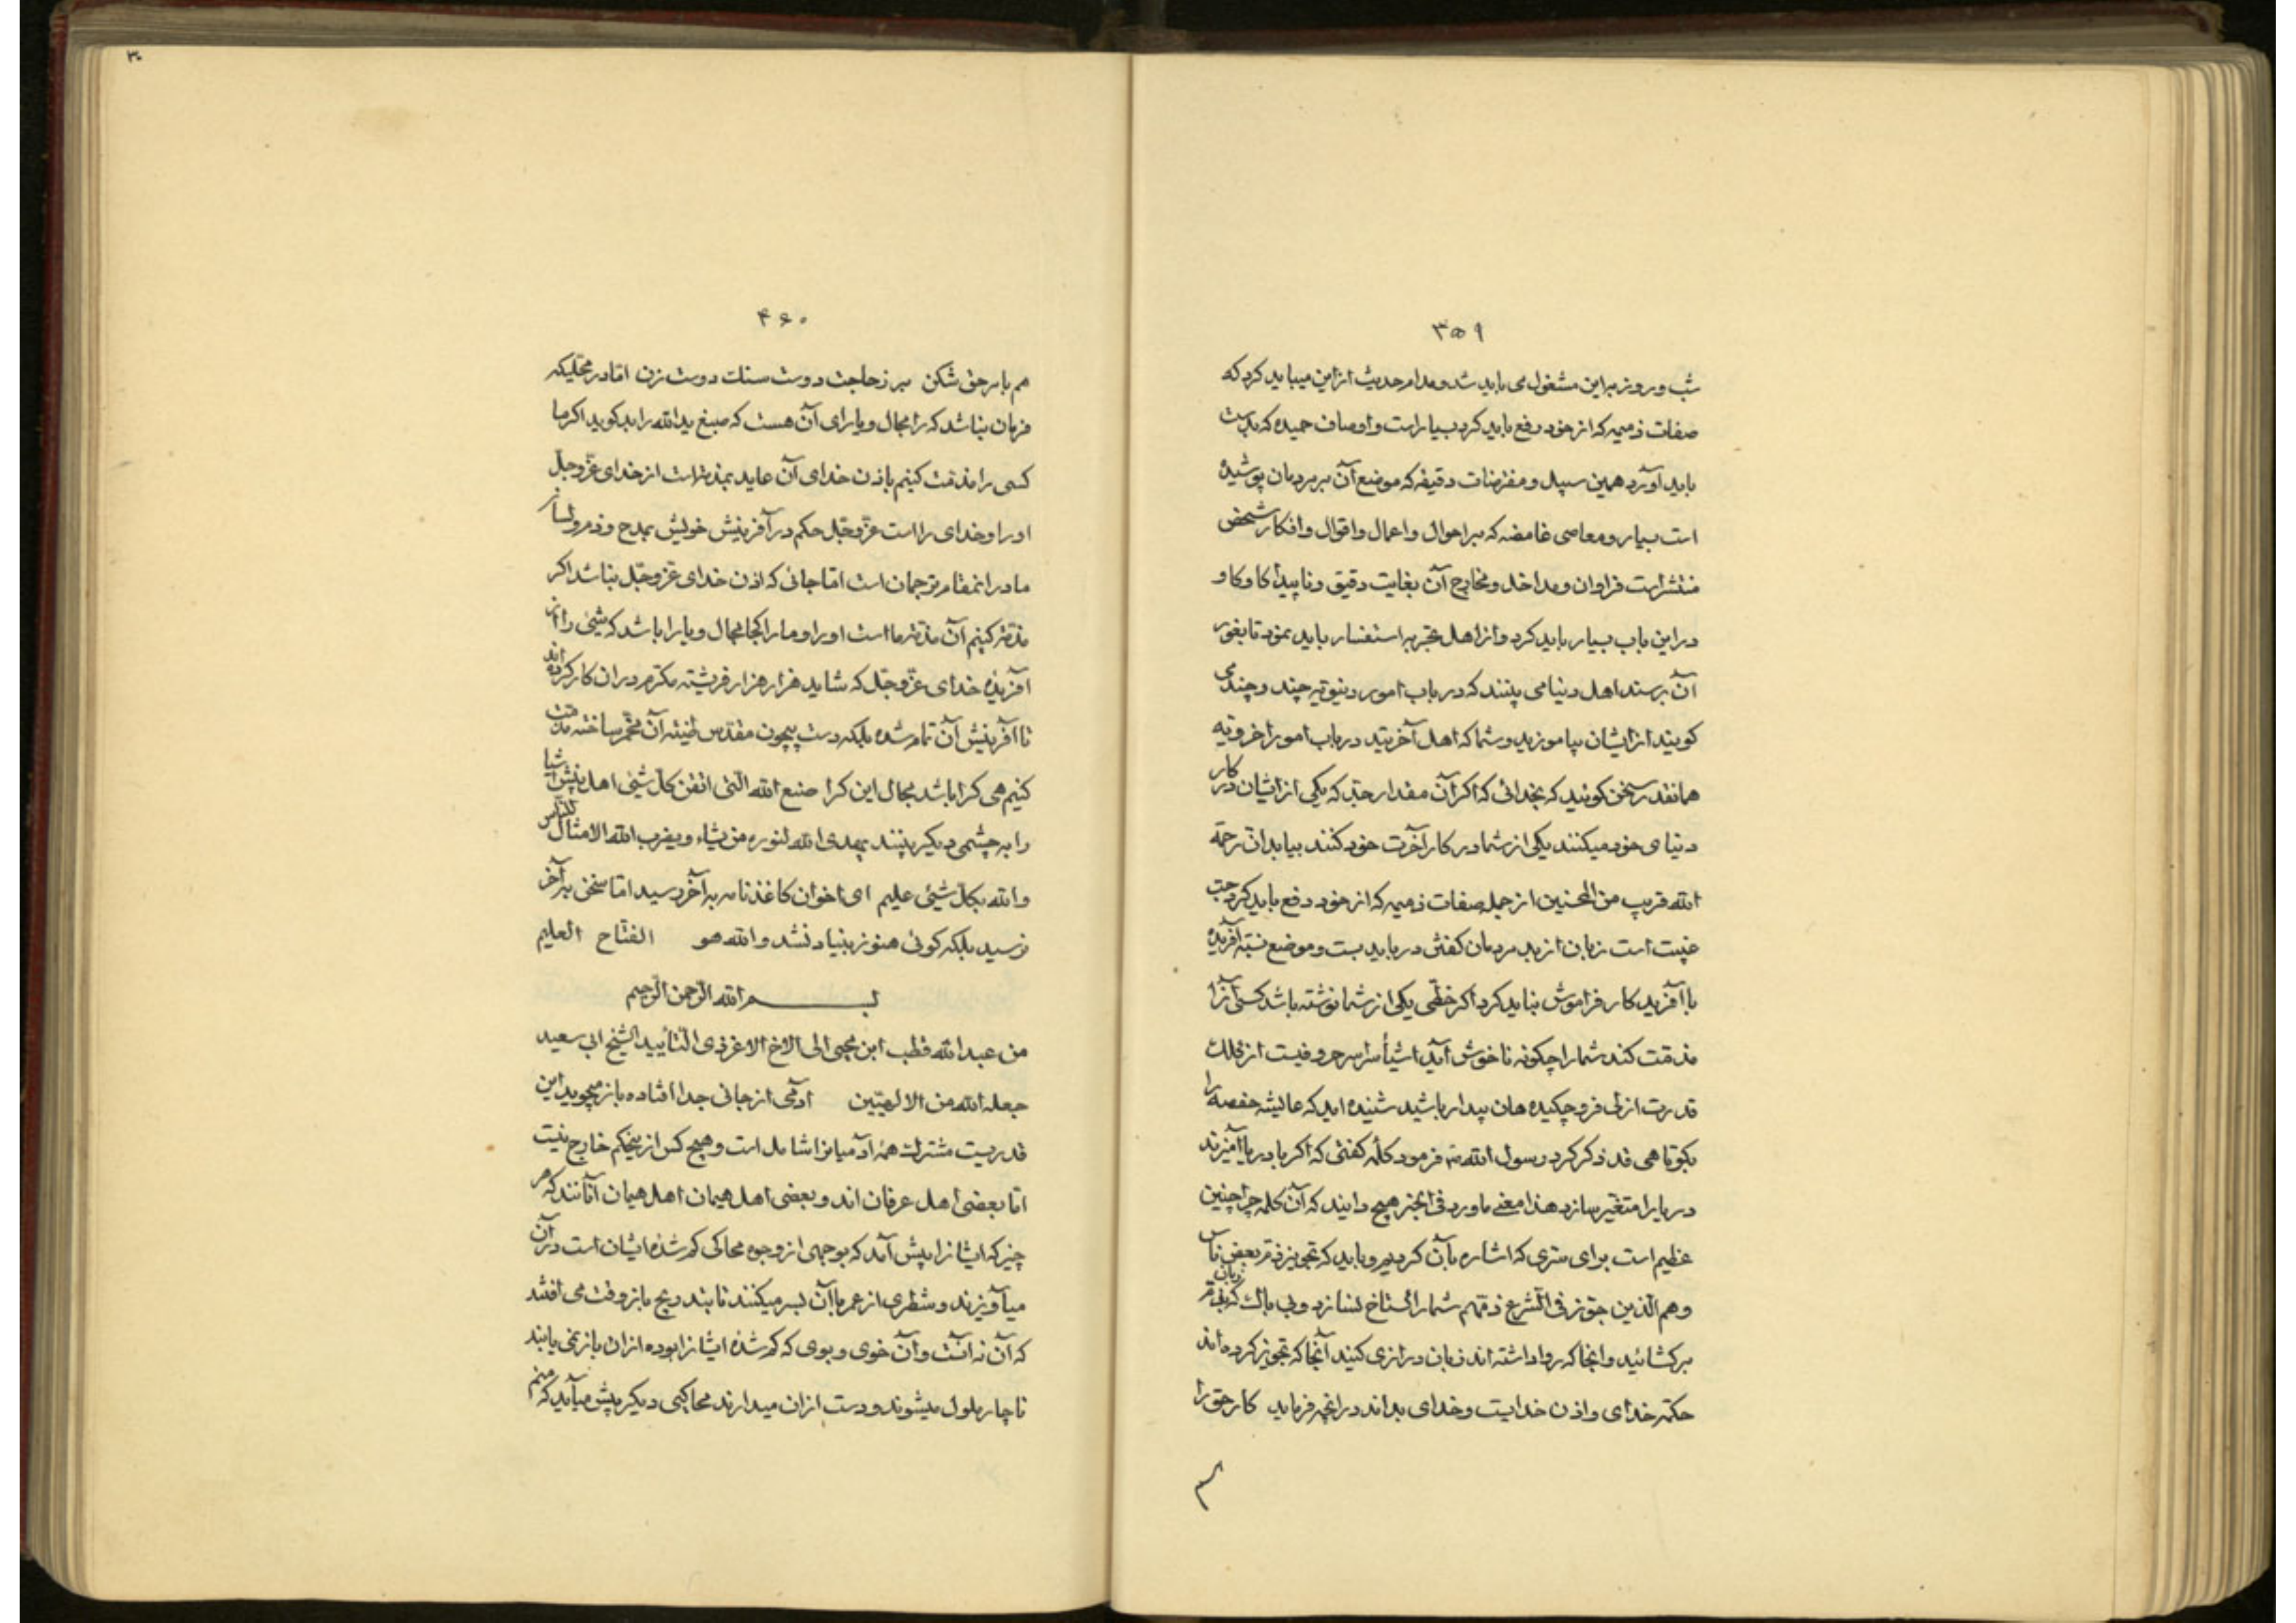 ۳۵۹
شب و روز براین مشغول می باید شد و مدام حدیث ازاین میباید کرد که
صفات ذمیمه که از خود دفع باید کرد بسیار است و اوصاف حمیده که بدست
باید آورد همین سبیل و مفترضات دقیقه که موضع آن بر مردمان پوشیده
است بسیار و معاصی غامضه که بر احوال و اعمال و اقوال و افکار شخص
منتشر است فراوان و مداخل و مخارج آن بغایت دقیق و ناپیدا کاوکاو
دراین باب بسیار باید کرد و از اهل تجربه استفسار باید نمود تا بغور
آن برسند اهل دنیا می بینند که در باب امور دنیویه چند و چند می
کویند از ایشان بیاموزید و شما که اهل آخرتید در باب امور اخرویه
همانقدر سخن کوئید که بخدائی که اکر آن مقدار جد که یکی از ایشان در کار
دنیای خود میکنند یکی از شما در کار آخرت خود کنند بیابد ان رحمة
الله قریب من المحسنین از جمله صفات ذمیمه که از خود دفع باید کرد
غیبت است زبان از بد مردمان کفتن در باید بست و موضع نسبة آفریده
با آفریدکار فراموش نباید کرد اکر خطی یکی از شما نوشته باشد کسی آنرا
مذمت کند شما را چکونه ناخوش آید اشیأ سراسر حروفیست از کلک
قدرت ازلی فرو چکیده هان بیدار باشید شنیده اید که عایشه حفصه را
بکوتاهی قد ذکر کرد رسول الله ص فرمود کلمه کفتی که اکر با دریا آمیزند
دریا را متغیر سازد هذا معنی ماورد فی الخبر هیچ دانید که آن کلمه چرا چنین
عظیم است برای سری که اشاره بآن کردیم و باید که تجویز ذم بعض ناس
وهم الذین جوز فی الشرع ذمهم شما را کستاخ نسازد و بی باک زبان
برکشائید و آنجا که روا داشته اند زبان درازی کنید آنجا که تجویز کرده اند
حکم خدای و اذن خدایست و خدای بداند در انچه فرماید کار حق را
۴۶۰
هم با بر حق شکن بر زجاجت دوست سنک دوست زن اما در محلیکه
فرمان نباشد که را مجال و یارای آن هست که صبغ ید الله را بد کوید اکر ما
کسی را مذمت کنیم باذن خدای آن عاید بمذمت است از خدای عز و جل
او را و خدای را است عز و جل حکم در آفرینش خویش بمدح و ذم و لسان
ما در اینمقام ترجمان است اما جائی که اذن خدای عز و جل نباشد اکر
مذمت کنیم آن مذمت ما است او را و ما را کجا مجال و یارا باشد که شیئی را از
آفریده خدای عز و جل که شاید هزار هزار فرشته مکرم در ان کار کرده اند
تا آفرینش آن تمام شده بلکه دست بیچون مقدس طینته آن مخمر ساخته مذمت
کنیم هی کرا باشد مجال این کرا صنع الله الذی اتقن کل شیئی اهل بینش اشیا
را به چشمی دیکر بینند یهدی الله لنوره من یشاء و یضرب الله الامثال للناس
والله بکل شیئی علیم ای اخوان کاغذ نامه به آخر رسید اما سخن به آخر
نرسید بلکه کوئی هنوز بنیاد نشد والله هو الفتاح العلیم
بسم الله الرحمن الرحیم
من عبد الله قطب ابن محیی الی الاخ الاعز ذی التأیید الشیخ ابی سعید
جعله الله من الالهیین آدمی از جائی جدا افتاده باز میجوید این
قدریست مشترک همه آدمیانرا شامل است و هیچ کس از اینحکم خارج نیست
امّا بعضی اهل عرفان اند و بعضی اهل هیمان اهل هیمان آنانند که هر
چیز که ایشانرا پیش آمد که بوجهی از وجوه محاکی کم شده ایشان است در آن
میآویزند و شطری از عمر با آن بسر میکنند تا بتدریج باز وقت می افتند
که آن نه آنست و آن خوی و بوی که کم شده ایشانرا بوده از ان باز نمی یابند
ناچار ملول میشوند و دست از ان میدارند محاکیی دیکر پیش میآید که منم